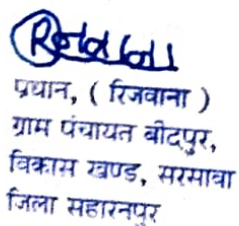 प्रधान, ( रिजवाना )
ग्राम पंचायत बीदपुर,
विकास खण्ड, सरसावा
जिला सहारनपुर